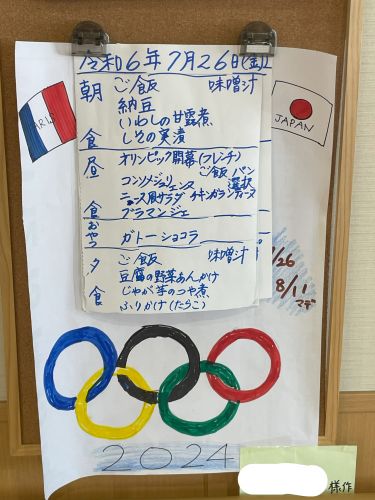 令和6年7月26日(金)
朝食
ご飯 味噌汁
納豆
いわしの甘露煮
しその実漬
昼食
オリンピック開幕(フレンチ)
ご飯 パン 選択
コンソメジュリエンヌ
ニース風サラダ チキンガランティーヌ
ブラマンジェ
おやつ
ガトーショコラ
夕食
ご飯 味噌汁
豆腐の野菜あんかけ
じゃが芋のつや煮
ふりかけ(たらこ)
PARIS
JAPAN
/26
8/11
マデ
2024
様作